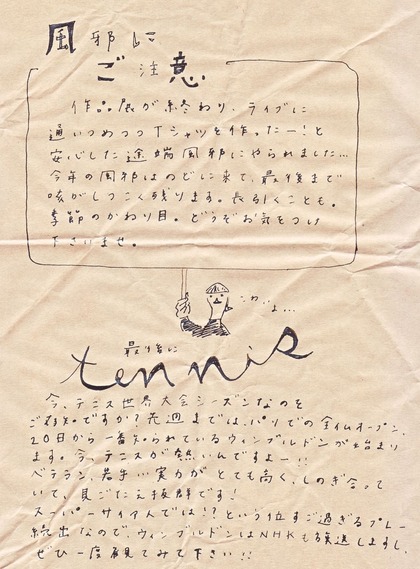 風邪に
ご注意
作品展が終わり、ライブに
通いつめつつTシャツを作ったー!と
安心した途端風邪にやられました…
今年の風邪はのどに来て、最後まで
咳がしつこく残ります。長引くことも。
季節のかわり目。どうぞお気をつけ
下さいませ。
こわいよ…
最後に
tennis
今、テニス世界大会シーズンなのを
ご存知ですか?先週まではパリでの全仏オープン、
20日から一番知られているウィンブルドンが始まり
ます。今、テニスが熱いんですよー!!
ベテラン、若手…実力がとても高く、しのぎ合って
いて、見ごたえ抜群です!
スーパーサイヤ人では!?という位すご過ぎるプレー
続出なので、ウィンブルドンはNHKも放送しますし、
ぜひ一度観てみて下さい!!